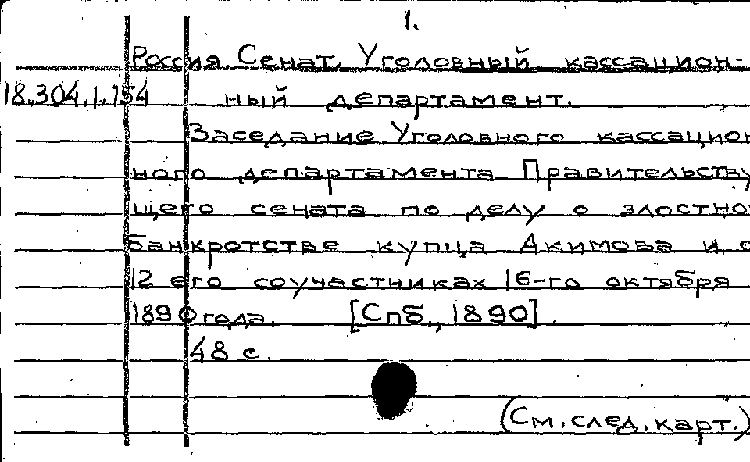 1.
Россия. Сенат. Уголовный кассацион-
18.304.1.154 ный департамент.
Заседание Уголовного кассацион
ного департамента Правительству
щего сената по делу о злостно
банкротстве купца Акимова и о
12 его соучастниках 16-го октября
1890 года. [Спб., 1890].
48 с.
(См. след. карт.)